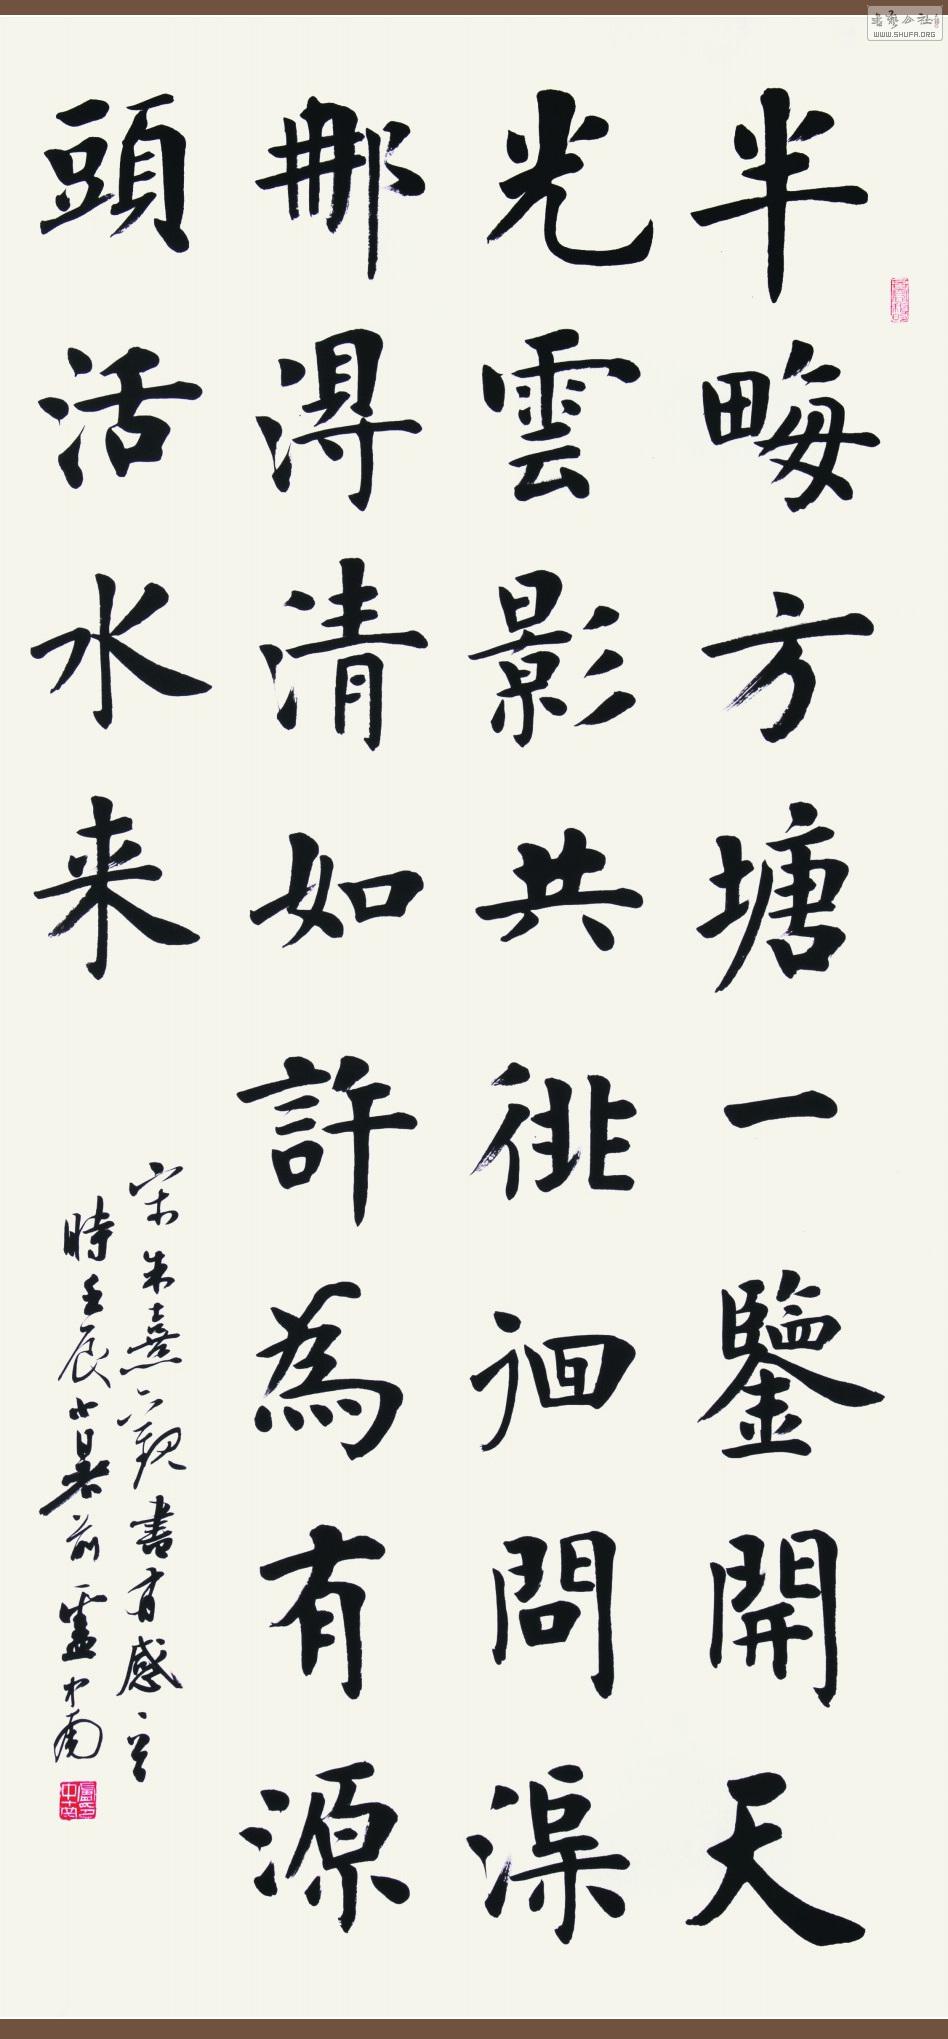 半畮方塘一鑒開天
光雲影共徘徊問渠
那淂清如許為有源
頭活水来
宋朱熹觀書有感
時壬辰小暑前盧中南
WWW.SHUFA.ORG